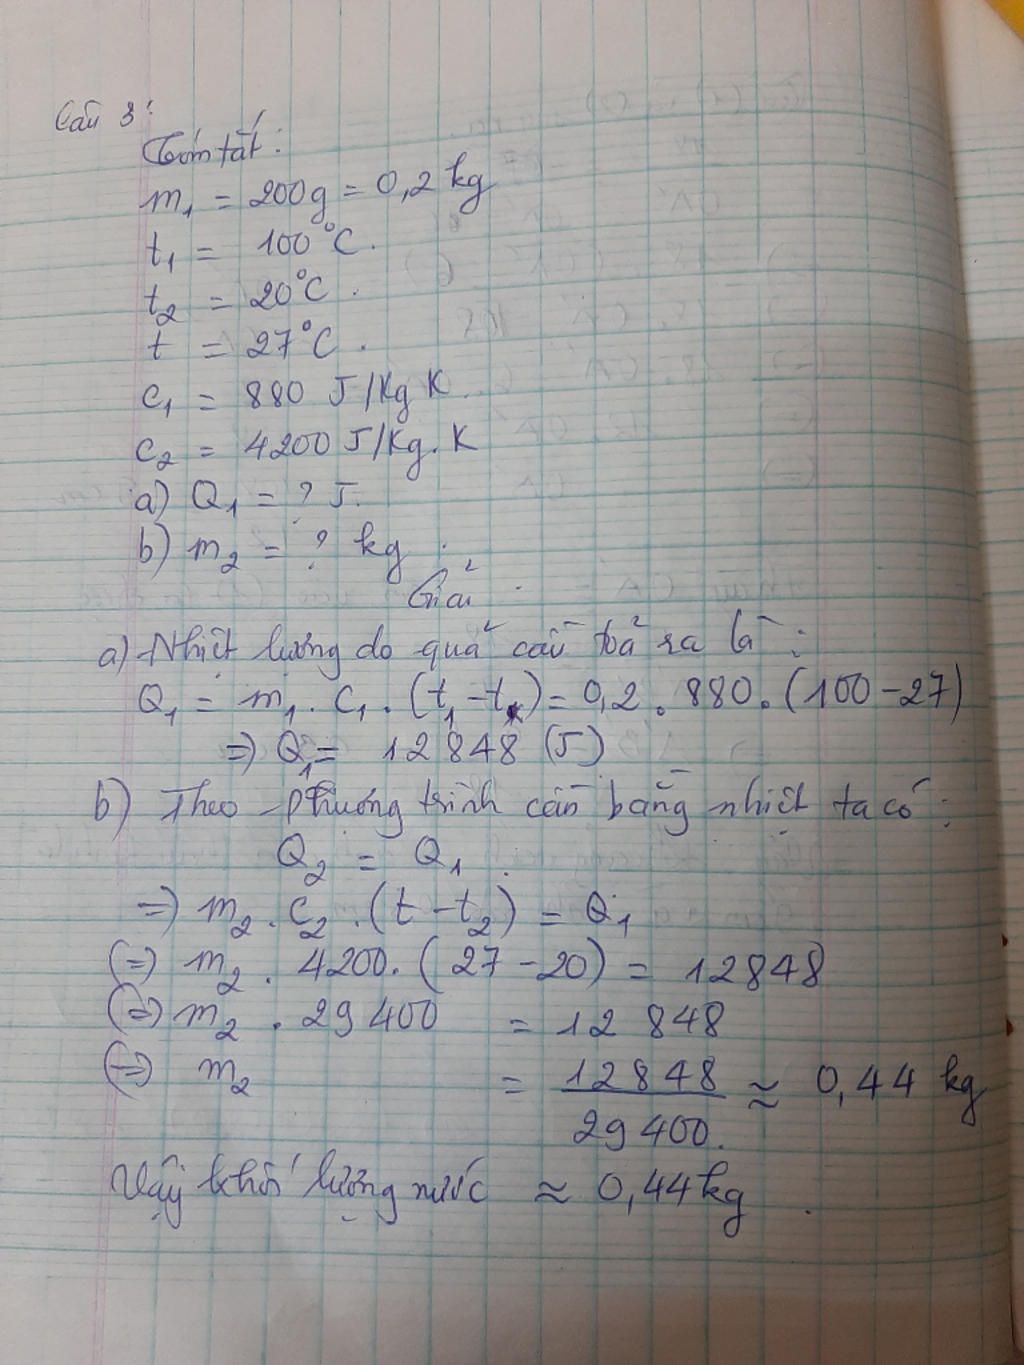 Câu 3:
Tóm tắt:
m₁ = 200g = 0,2 kg
t₁ = 100°C.
t₂ = 20°C.
t = 27°C.
c₁ = 880 J/Kg K.
c₂ = 4200 J/Kg.K
a) Q₁ = ? J.
b) m₂ = ? kg.
Giải
a) Nhiệt lượng do quả cầu toả ra là:
Q₁ = m₁. C₁. (t₁ - t) = 0,2. 880. (100 - 27)
=> Q₁ = 12848 (J)
b) Theo phương trình cân bằng nhiệt ta có:
Q₂ = Q₁
=> m₂. C₂. (t - t₂) = Q₁
(=) m₂. 4200. (27 - 20) = 12848
(=) m₂. 29400 = 12 848
(=) m₂ = 12848/29400. ≈ 0,44 kg
Vậy khối lượng nước ≈ 0,44kg.